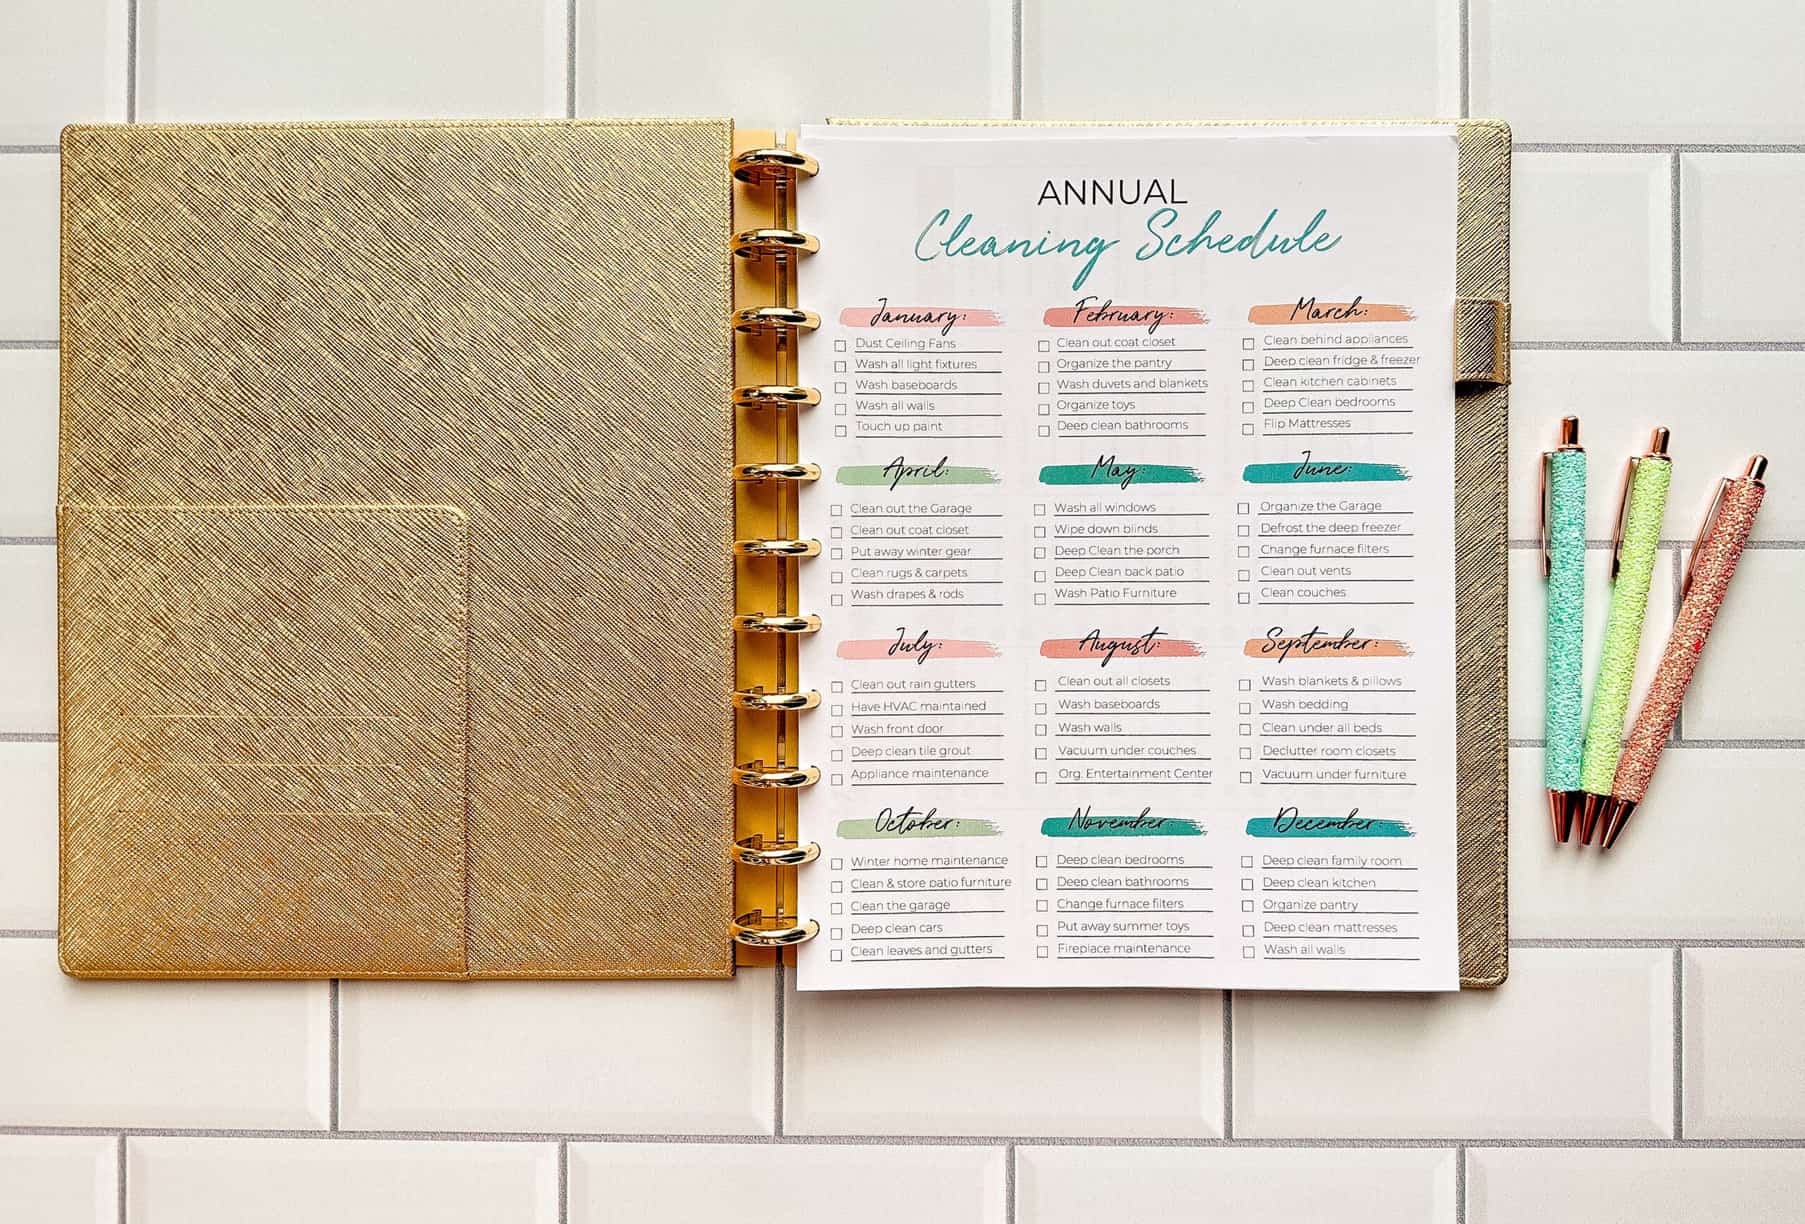 ANNUAL
Cleaning Schedule
January:
Dust Ceiling Fans
Wash all light fixtures
Wash baseboards
Wash all walls
Touch up paint
February:
Clean out coat closet
Organize the pantry
Wash duvets and blankets
Organize toys
Deep clean bathrooms
March:
Clean behind appliances
Deep clean fridge & freezer
Clean kitchen cabinets
Deep Clean bedrooms
Flip Mattresses
April:
Clean out the Garage
Clean out coat closet
Put away winter gear
Clean rugs & carpets
Wash drapes & rods
May:
Wash all windows
Wipe down blinds
Deep Clean the porch
Deep Clean back patio
Wash Patio Furniture
June:
Organize the Garage
Defrost the deep freezer
Change furnace filters
Clean out vents
Clean couches
July:
Clean out rain gutters
Have HVAC maintained
Wash front door
Deep clean tile grout
Appliance maintenance
August:
Clean out all closets
Wash baseboards
Wash walls
Vacuum under couches
Org. Entertainment Center
September:
Wash blankets & pillows
Wash bedding
Clean under all beds
Declutter room closets
Vacuum under furniture
October:
Winter home maintenance
Clean & store patio furniture
Clean the garage
Deep clean cars
Clean leaves and gutters
November:
Deep clean bedrooms
Deep clean bathrooms
Change furnace filters
Put away summer toys
Fireplace maintenance
December:
Deep clean family room
Deep clean kitchen
Organize pantry
Deep clean mattresses
Wash all walls